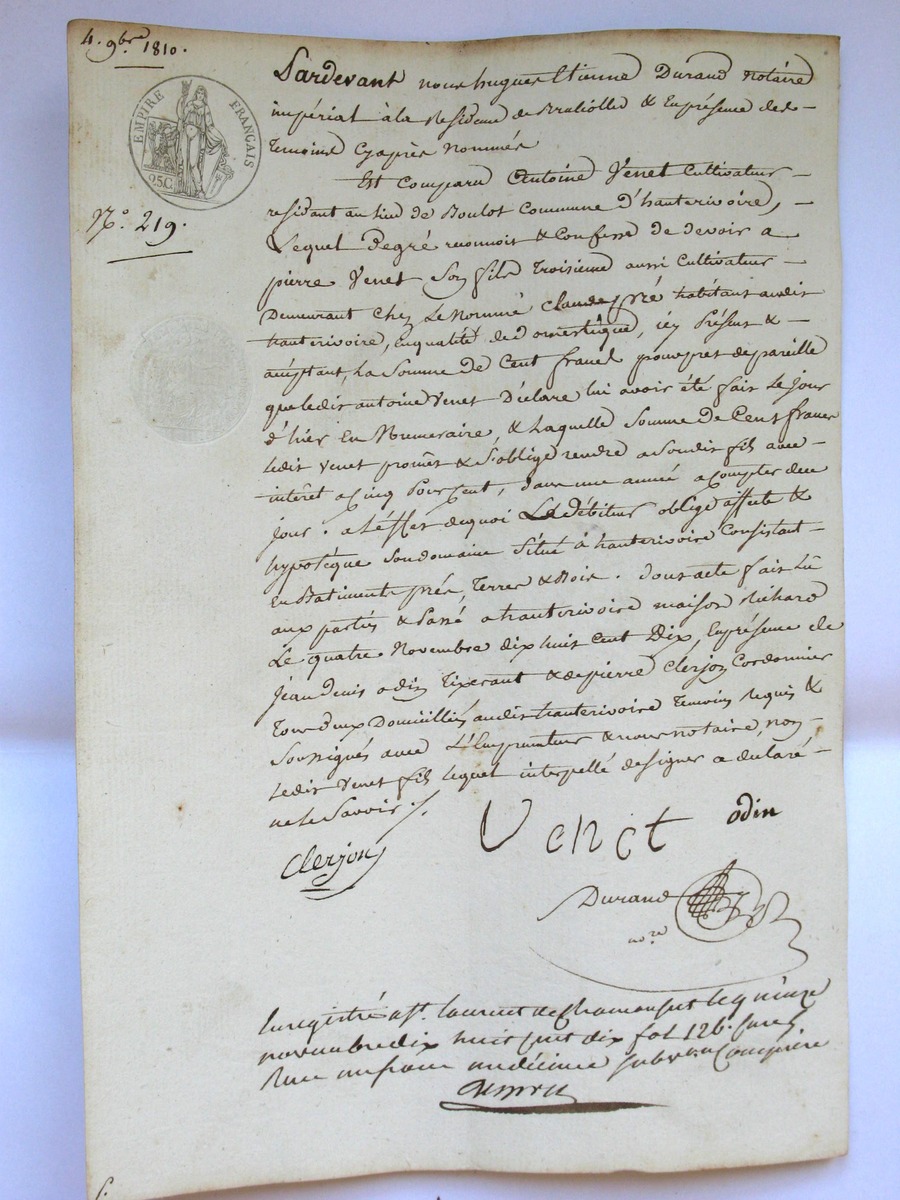 4. 9bre 1810.
EMPIRE FRANÇAIS
25C.
No. 219.
Pardevant nous hugues Etienne Durand Notaire
impérial à la Residence de Brullioles & En présence des
Temoins Cyaprès Nommés
Est Comparu Antoine Venet Cultivateur
residant au lieu de Boulot Commune d'hauterivoire,
Lequel degré reconnois & Confesse de devoir a
pierre Venet Son fils Troisieme aussi Cultivateur
Demeurant Chez Le Nommé Claude habitant audit
hauterivoire, En qualité de domestique, icy Présent &
acceptant, La Somme de Cent francs pour pret de pareille
que ledit antoine Venet Déclare lui avoir été fait Le Jour
d'hier En Numeraire, & Laquelle Somme de Cent francs
Ledit Venet promet & S'oblige rendre a Sondit fils avec
intérêt a Cinq Pour Cent, dans une année a Compter de ce
Jour. a L'effet de quoi Le Débiteur oblige affecte &
hypotèque Son domaine Situé à hauterivoire Consistant
En Batiments, prés, Terres & Bois. dont acte fait Lû
aux parties & Passé a hauterivoire maison Richard
Le quatre Novembre dix huit Cent Dix, En présence de
Jean Denis odin Tixerant & de pierre Clerjon Cordonnier
Tous deux Domiciliés audit hauterivoire Temoins Requis &
Soussignés avec L'Emprunteur & nous notaire, non
Ledit Venet fils Lequel interpellé de signer a déclaré
ne Le Savoir ./.
Clerjon Venet odin
Durand
nore
Enregistré a St. Laurent de Chamousset le quinze
novembre dix huit cent dix fol. 126
Reçu un franc un décime Subvon Comprise